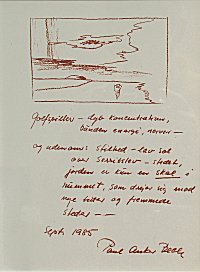 Golfspiller – dyb koncentration,
bunden energi, nerver –
og udenom: stilhed – lav sol
over – stedet,
jorden er kun en skal i
rummet, som drejer sig mod
nye tider og fremmede
steder – –
Sept. 1985
Paul Anker Bech